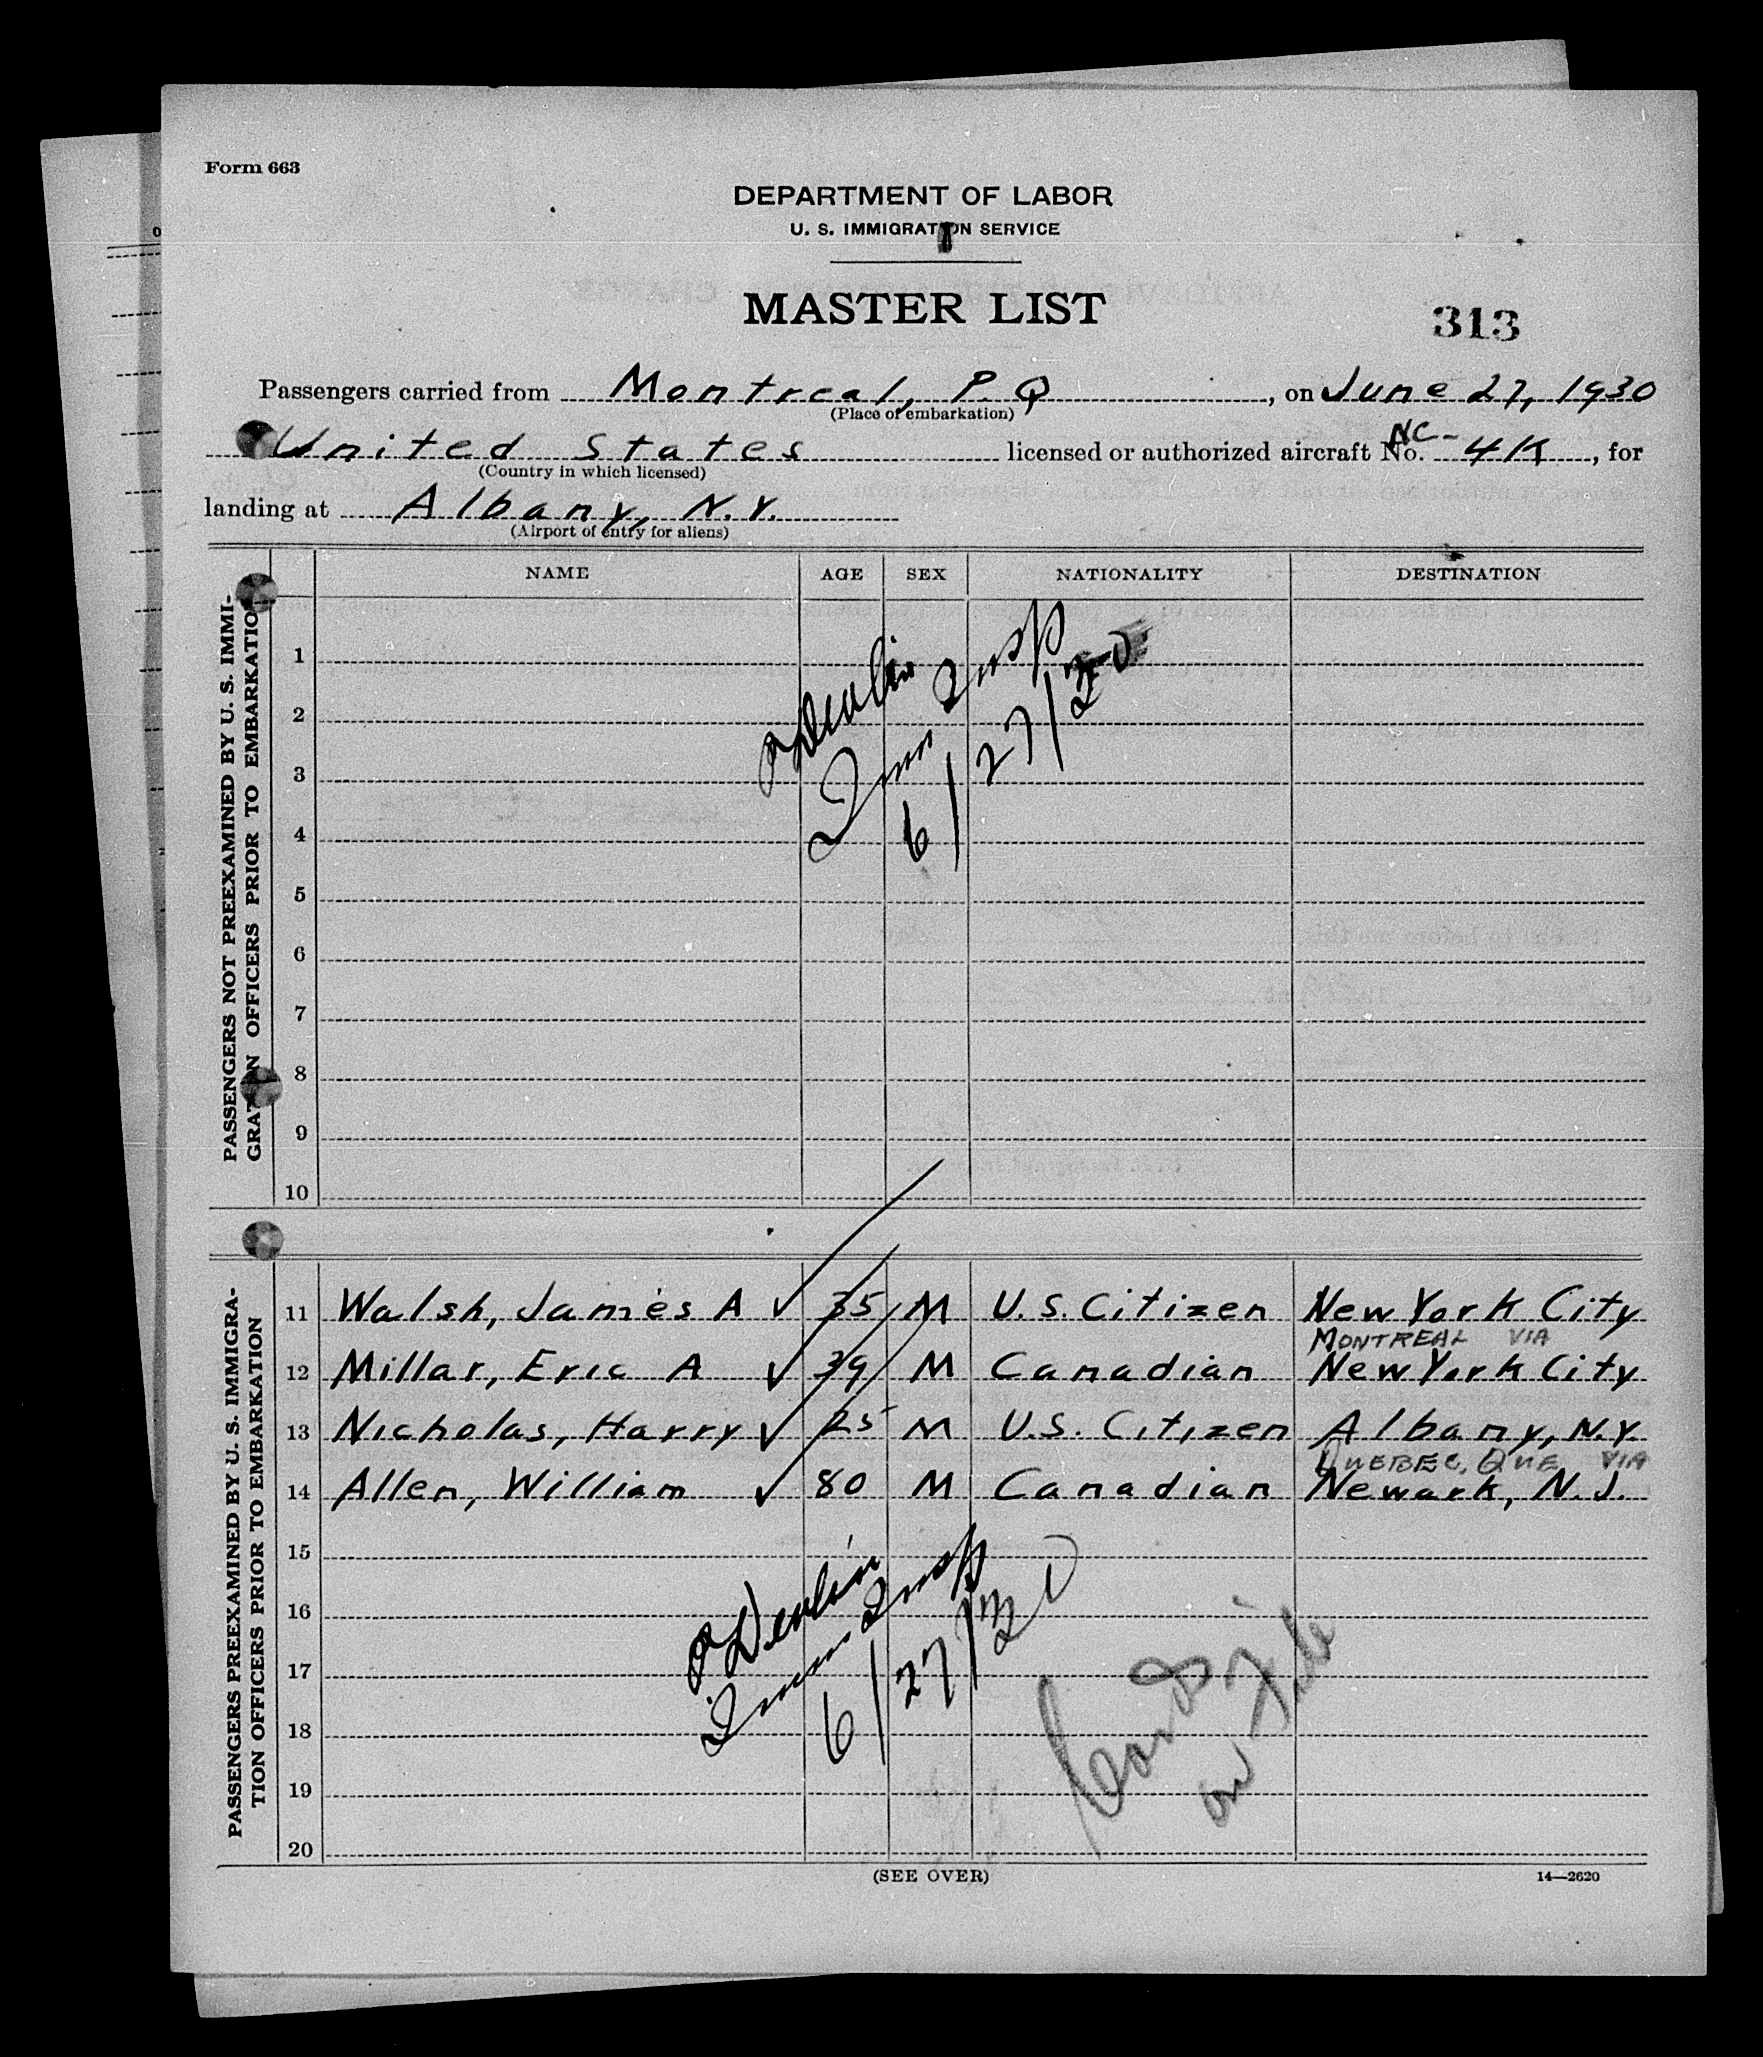 Form 663
DEPARTMENT OF LABOR
U. S. IMMIGRATION SERVICE
MASTER LIST
313
Passengers carried from Montreal, P.Q , on June 27, 1930
(Place of embarkation)
United States licensed or authorized aircraft No. NC-4K, for
(Country in which licensed)
landing at Albany, N.Y.
(Airport of entry for aliens)
NAME AGE SEX NATIONALITY DESTINATION
PASSENGERS NOT PREEXAMINED BY U. S. IMMI-
GRATION OFFICERS PRIOR TO EMBARKATION
1
2
3
4
5
6
7
8
9
10
Devlin
Imm Insp
6/27/30
PASSENGERS PREEXAMINED BY U. S. IMMIGRA-
TION OFFICERS PRIOR TO EMBARKATION
11 Walsh, James A ✓ 35 M U.S. Citizen New York City
MONTREAL VIA
12 Millar, Eric A ✓ 39 M Canadian New York City
13 Nicholas, Harry ✓ 25 M U.S. Citizen Albany, N.Y.
QUEBEC, QUE VIA
14 Allen, William ✓ 80 M Canadian Newark, N.J.
15
16
17
18
19
20
Devlin
Imm Insp
6/27/30
Cards
on File
(SEE OVER)
14—2620